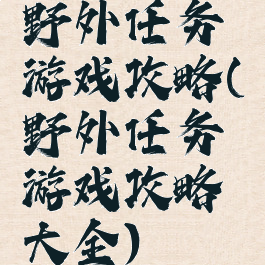 野外任务
游戏攻略(
野外任务
游戏攻略
大全)